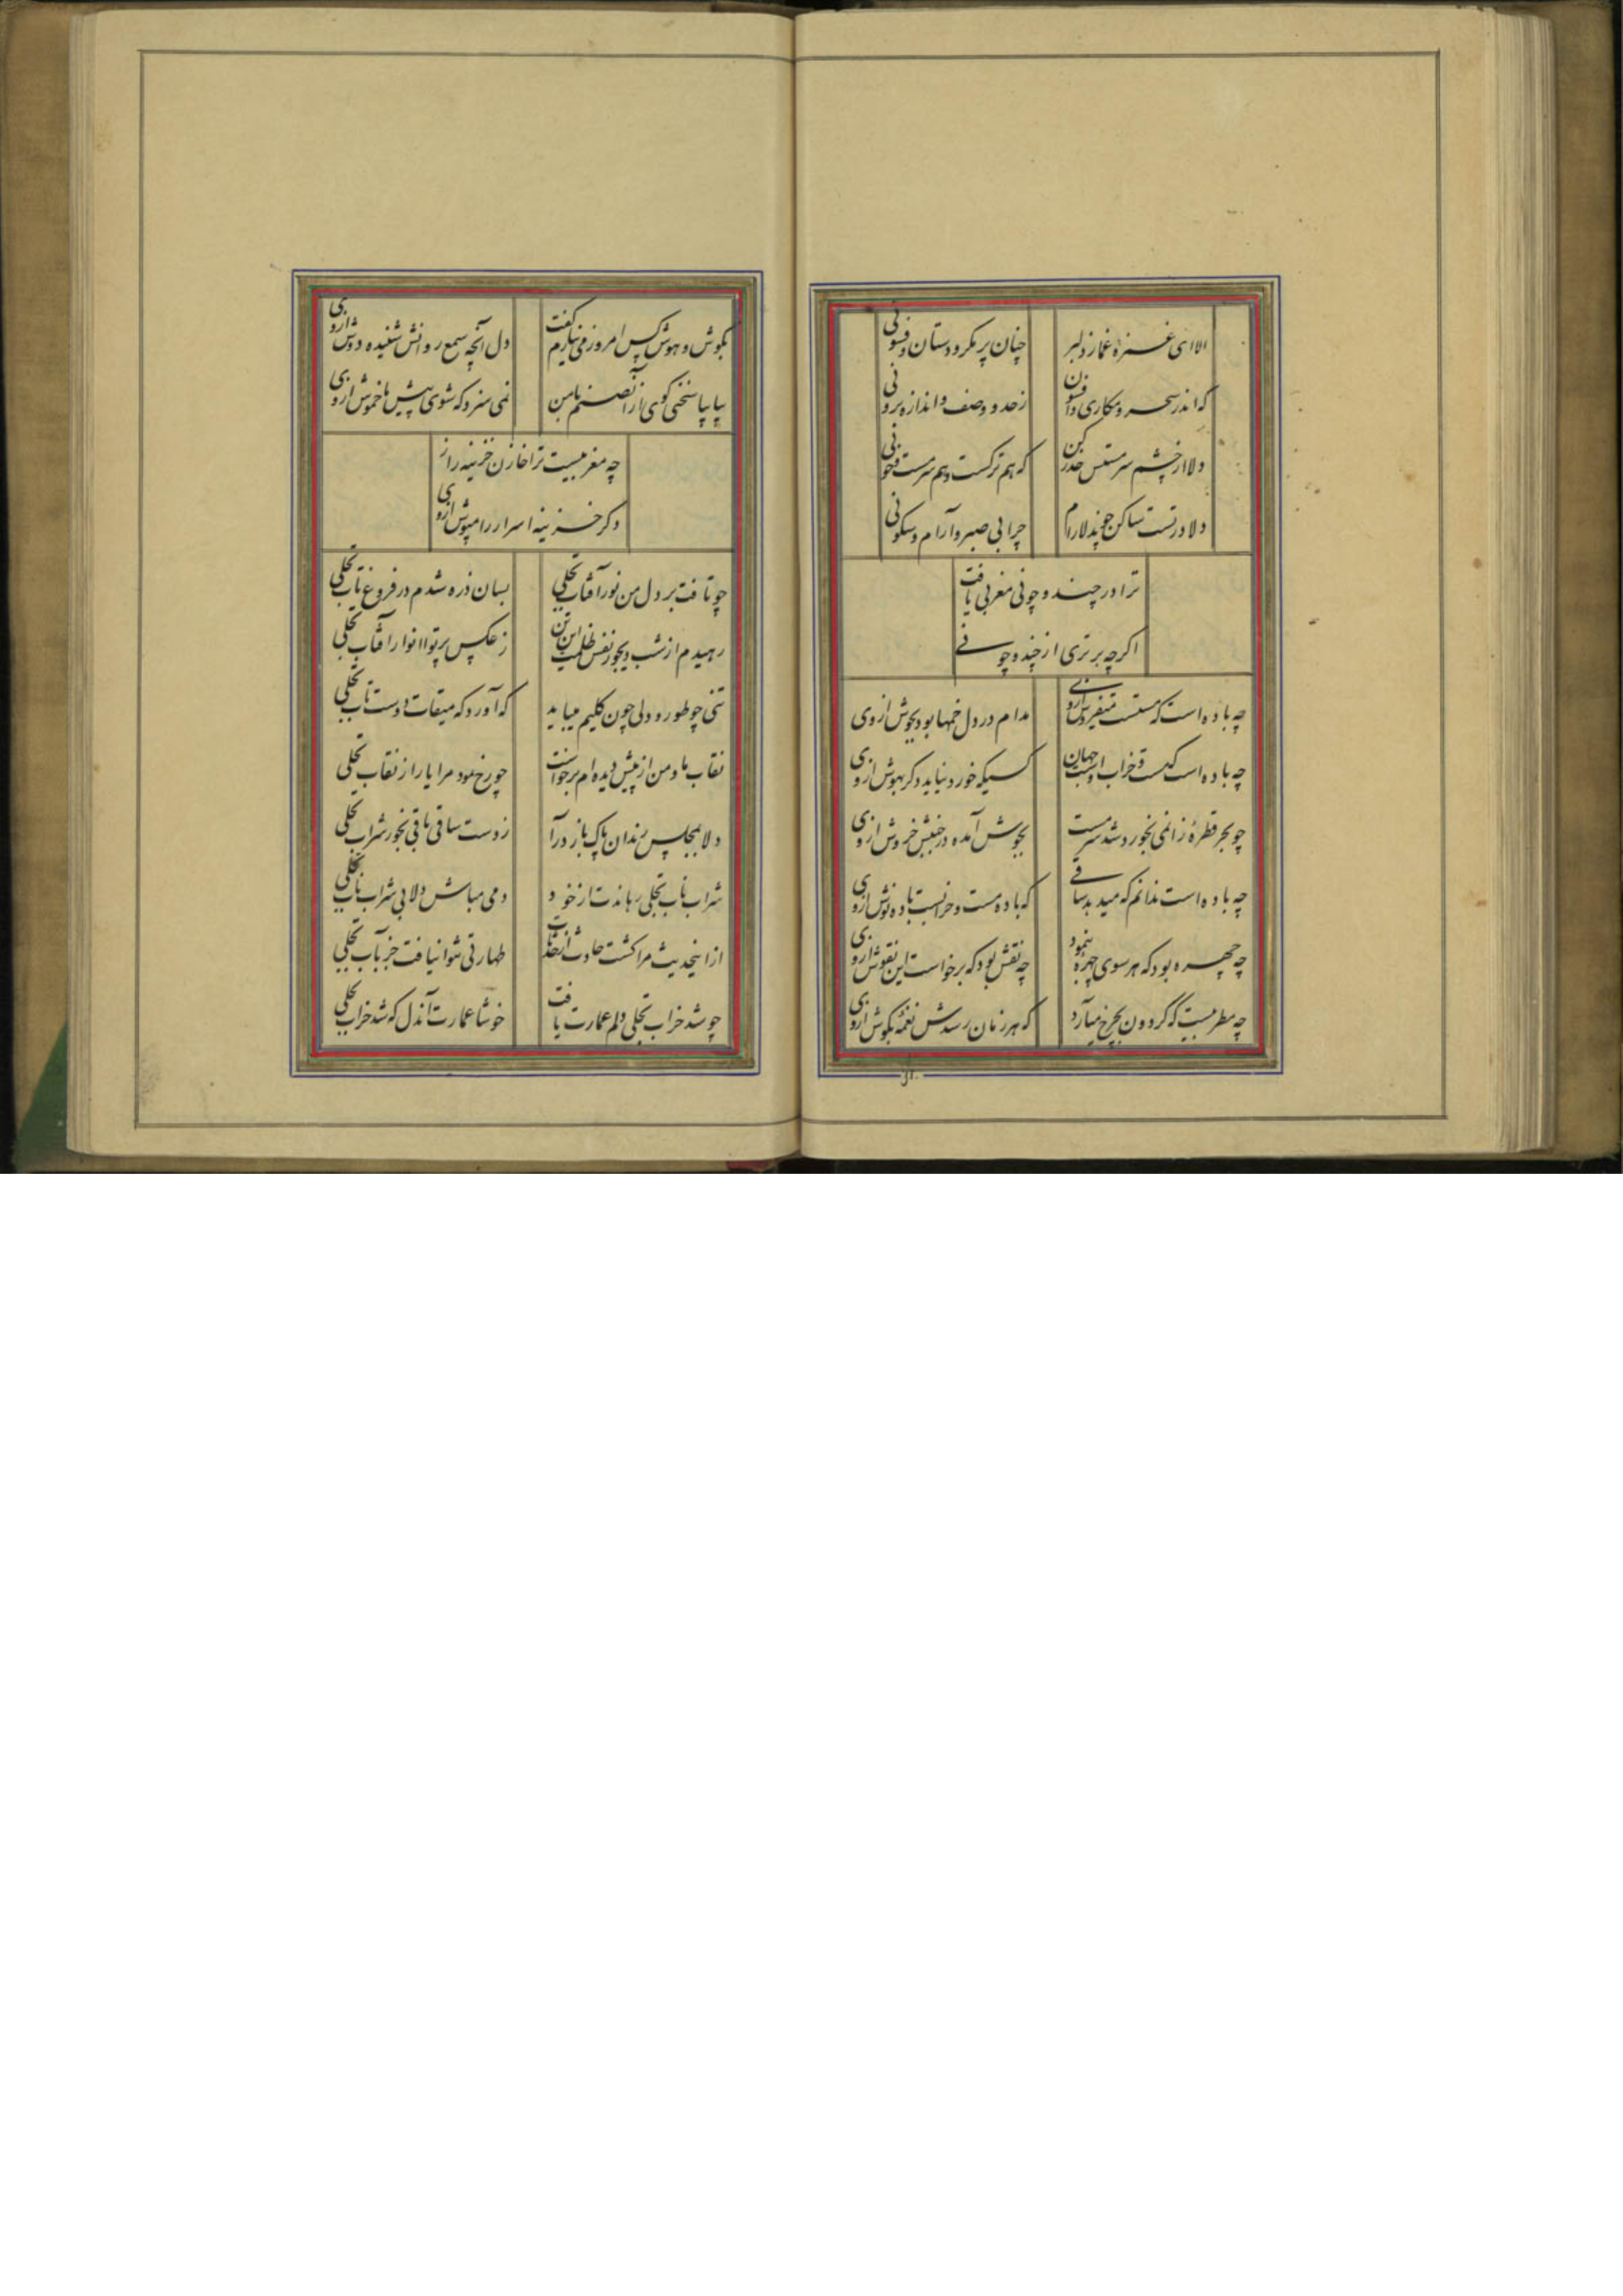 الا ای غمزهٔ غماز دلبر
چنان پر مکر و دستان و فسونی
که اندر سحر و مکاری و افسون
ز حد و وصف و اندازه برونی
دلا از چشم سرمستش حذر کن
که هم ترکست و هم سرمست و خونی
دلا در تست ساکن چون دلارام
چرا بی صبر و آرام و سکونی
ترا در چند و چونی مغربی یافت
اگر چه برتری از چند و چونے
چه باده است که مستست میفروش ازوی
مدام در دل خمها بود بجوش ازوی
چه باده است که مست و خراب اوست جهان
کسیکه خورد نیاید دگر بهوش ازوی
چو بحر قطرهٔ زان می بخورد شد سرمست
بجوش آمده در جنبش خروش ازوی
چه باده است ندانم که میدهد ساقے
که باده مست و خرابست باده نوش ازوی
چه چهره بود که هر سوی چهره بنمود
چه نقش بود که برخواست این نقوش ازوی
چه مطربیست که گردون بچرخ میآرد
که هر زمان رسدش نغمهٔ بگوش ازوی
بگوش و هوش کس امروز می نیارم گفت
دل آنچه سمع روانش شنیده دوش ازوی
بیا بیا سخنی گوی ازان صنم با من
نمی سزد که شوی پیش ما خموش ازوی
چه مغربیست ترا خازن خزینه راز
دگر خزینه اسرار را مپوش ازوی
چو تافت بر دل من نور آفتاب تجلی
بسان ذره شدم در فروغ تاب تجلی
رهیدم از شب دیجور نفس ظلمت این تن
ز عکس پرتو انوار آفتاب تجلی
تنی چو طور و دلی چون کلیم میباید
که آورد که میقات دوست تاب تجلی
نقاب ما و من از پیش دیده ام برخواست
چو رخ نمود مرا یار از نقاب تجلی
دلا بمجلس رندان پاک باز درآ
ز دست ساقی باقی بخور شراب تجلی
شراب ناب تجلی رهاندت از خود
دمی مباش دلا بی شراب ناب تجلی
از اینحدیث مرا کشت حادث از حدثان
طهارتی نتوان یافت جز بآب تجلی
چو شد خراب تجلی دلم عمارت یافت
خوشا عمارت آندل که شد خراب تجلی